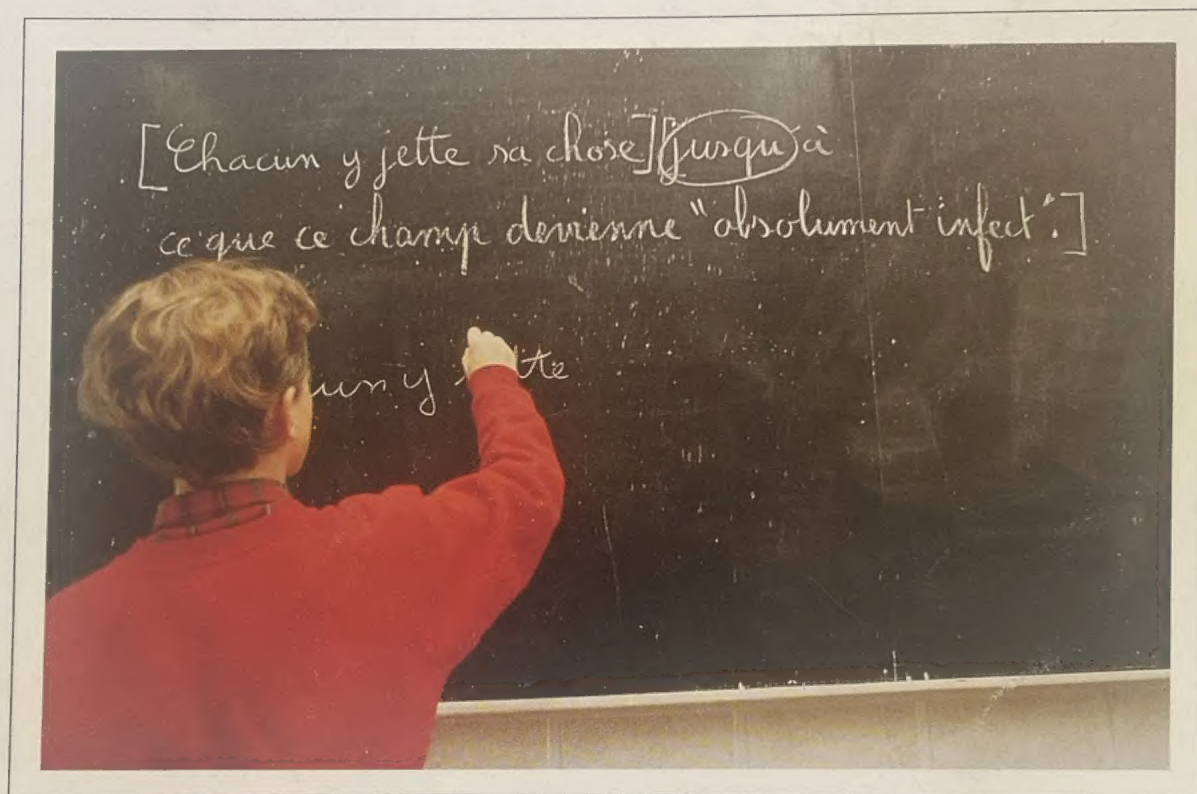 [Chacun y jette sa chose][jusqu'à
ce que ce champ devienne "absolument infect".]
y